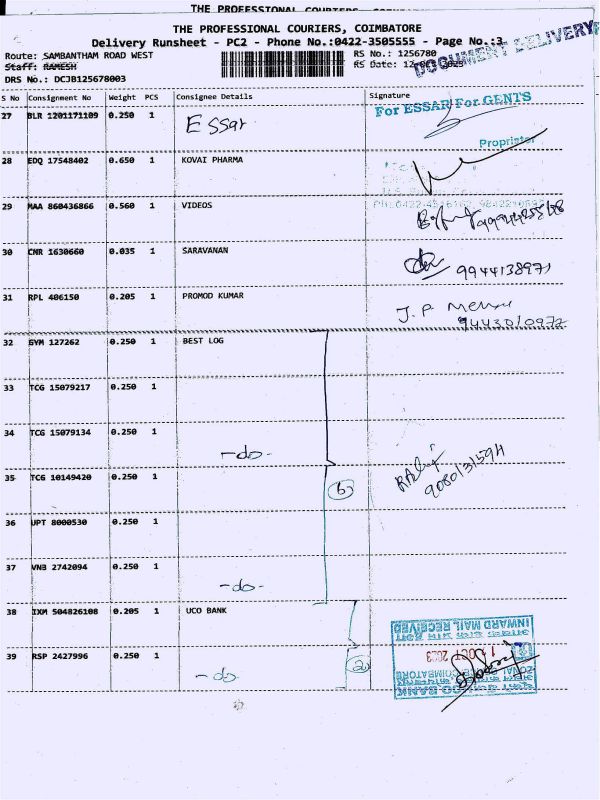 THE PROFESSIONAL COURIERS, COIMBATORE
Delivery Runsheet - PC2 - Phone No.:0422-3505555 - Page No.:3
DOCUMENT DELIVERY
Route: SAMBANTHAM ROAD WEST
RS No.: 1256780
Staff: RAMESH
RS Date:
DRS No.: DCJB125678003
S No Consignment No Weight PCS Consignee Details Signature
27 BLR 1201171109 0.250 1 Essar
For ESSAR For GENTS
Proprietor
28 EDQ 17548402 0.650 1 KOVAI PHARMA
29 MAA 860436866 0.560 1 VIDEOS
30 CMR 1630660 0.035 1 SARAVANAN
9944138971
31 RPL 406150 0.205 1 PROMOD KUMAR
J. P
9443010972
32 GYM 127262 0.250 1 BEST LOG
33 TCG 15079217 0.250 1
34 TCG 15079134 0.250 1
-do-
35 TCG 10149420 0.250 1
36 UPT 8000530 0.250 1
37 VNB 2742094 0.250 1
-do-
38 IXM 504826108 0.205 1 UCO BANK
INWARD MAIL RECEIVED
39 RSP 2427996 0.250 1
-do
OCT 2023
COIMBATORE
UCO BANK